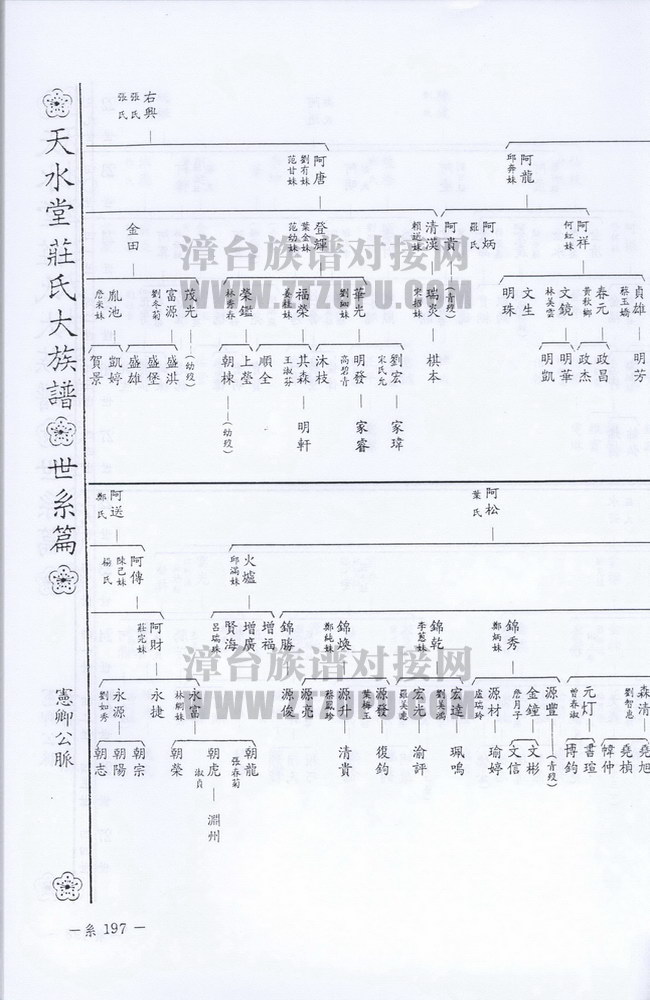 天水堂莊氏大族譜
世系篇
憲卿公脈
右興
張氏
張氏
阿龍
邱奔妹
阿唐
劉有妹
范甘妹
阿祥
何缸妹
阿炳
羅氏
阿貴
清漢
登輝
葉金妹
范幼妹
金田
貞雄
蔡玉嬌
春元
黃秋鄉
文鏡
林美雲
文生
明珠
(青歿)
瑞炎
宋招妹
華光
劉細妹
福榮
姜桂妹
榮鑑
林秀春
茂光
富源
劉冬菊
胤池
詹米妹
明芳
政昌
政杰
明華
明凱
棋本
劉宏
宋氏允
明發
高碧青
沐枝
其森
王淑芬
順全
上瑩
朝棟
(幼歿)
盛淇
盛堡
盛雄
凱婷
賀景
家瑋
家睿
明軒
(幼歿)
阿松
葉氏
阿送
鄭氏
火爐
邱滿妹
阿傳
陳己妹
楊氏
錦秀
鄭炳妹
錦乾
李蔥妹
錦煥
鄭純妹
錦勝
增福
增廣
賢海
呂瑞珠
阿財
莊完妹
森清
劉智惠
元灯
曾春淑
源豐
金鐘
詹月子
源材
盧瑞玲
宏達
劉美滿
宏光
羅美惠
源發
葉梅玉
源升
蔡鳳珍
源亮
源俊
永富
林綢妹
永捷
永源
劉如秀
堯旭
堯楨
幃仲
書瑄
博鈞
(青歿)
文彬
文信
瑜婷
珮鳴
渝評
復鈞
清貴
朝龍
張春菊
朝虎
淑貞
朝榮
朝宗
朝陽
朝志
淵州
—系 197—
漳台族谱对接网
WWW.ZTZUPU.COM
漳台族谱对接网
WWW.ZTZUPU.COM